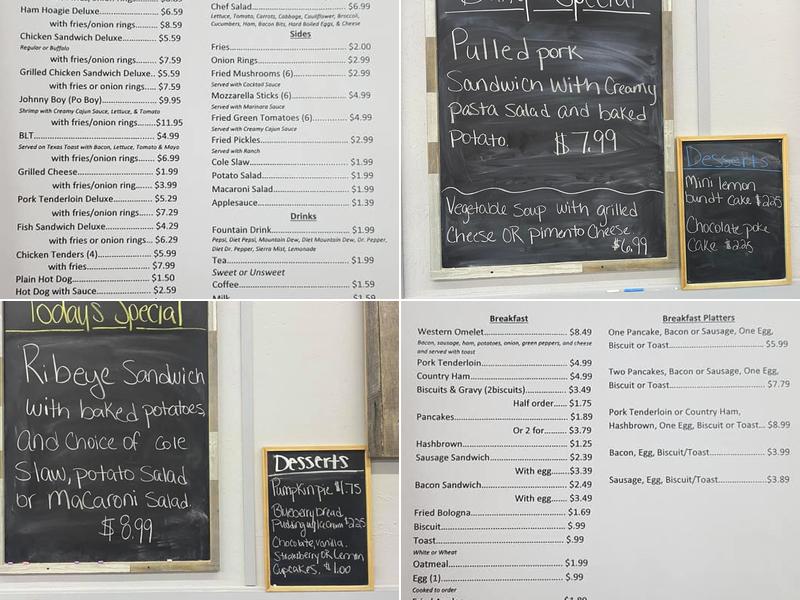 Ham Hoagie Deluxe................ $6.59
with fries/onion rings....... $8.59
Chicken Sandwich Deluxe........ $5.59
Regular or Buffalo
with fries/onion rings....... $7.59
Grilled Chicken Sandwich Deluxe.. $5.59
with fries or onion rings... $7.59
Johnny Boy (Po Boy)............... $9.95
Shrimp with Creamy Cajun Sauce, Lettuce, & Tomato
with fries/onion rings......$11.95
BLT.................................... $4.99
Served on Texas Toast with Bacon, Lettuce, Tomato & Mayo
with fries/onion rings....... $6.99
Grilled Cheese...................... $1.99
with fries/onion ring....... $3.99
Pork Tenderloin Deluxe........... $5.29
with fries/onion rings....... $7.29
Fish Sandwich Deluxe............. $4.29
with fries or onion rings... $6.29
Chicken Tenders (4)............... $5.99
with fries.................... $7.99
Plain Hot Dog....................... $1.50
Hot Dog with Sauce................ $2.59
Chef Salad............................ $6.99
Lettuce, Tomato, Carrots, Cabbage, Cauliflower, Broccoli,
Cucumbers, Ham, Bacon Bits, Hard Boiled Eggs, & Cheese
Sides
Fries................................... $2.00
Onion Rings.......................... $2.99
Fried Mushrooms (6)............... $2.99
Served with Cocktail Sauce
Mozzarella Sticks (6).............. $4.99
Served with Marinara Sauce
Fried Green Tomatoes (6)......... $4.99
Served with Creamy Cajun Sauce
Fried Pickles......................... $2.99
Served with Ranch
Cole Slaw............................. $1.99
Potato Salad......................... $1.99
Macaroni Salad...................... $1.99
Applesauce........................... $1.39
Drinks
Fountain Drink....................... $1.99
Pepsi, Diet Pepsi, Mountain Dew, Diet Mountain Dew, Dr. Pepper,
Diet Dr. Pepper, Sierra Mist, Lemonade
Tea..................................... $1.99
Sweet or Unsweet
Coffee................................. $1.59
Milk $1.59
Special
Pulled pork
Sandwich with Creamy
pasta salad and baked
Potato. $7.99
Vegetable Soup with grilled
Cheese OR pimento Cheese.
$6.99
Desserts
Mini lemon
bundt cake $2.25
Chocolate poke
Cake $2.25
Todays Special
Ribeye Sandwich
with baked potatoes,
and Choice of cole
Slaw, potato Salad
or Macaroni Salad.
$8.99
Desserts
Pumpkin pie $1.75
Blueberry bread
Pudding w/ice cream $2.25
Chocolate, vanilla,
Strawberry OR Lemon
Cupcakes. $1.00
Breakfast
Western Omelet........................ $8.49
Bacon, sausage, ham, potatoes, onion, green peppers, and cheese
and served with toast
Pork Tenderloin........................ $4.99
Country Ham........................... $4.99
Biscuits & Gravy (2biscuits)......... $3.49
Half order.... $1.75
Pancakes................................ $1.89
Or 2 for..... $3.79
Hashbrown............................. $1.25
Sausage Sandwich.................... $2.39
With egg.....$3.39
Bacon Sandwich....................... $2.49
With egg..... $3.49
Fried Bologna.......................... $1.69
Biscuit................................... $.99
Toast.................................... $.99
White or Wheat
Oatmeal................................ $1.99
Egg (1).................................. $.99
Cooked to order
Breakfast Platters
One Pancake, Bacon or Sausage, One Egg,
Biscuit or Toast........................ $5.99
Two Pancakes, Bacon or Sausage, One Egg,
Biscuit or Toast........................ $7.79
Pork Tenderloin or Country Ham,
Hashbrown, One Egg, Biscuit or Toast... $8.99
Bacon, Egg, Biscuit/Toast............. $3.99
Sausage, Egg, Biscuit/Toast........... $3.89